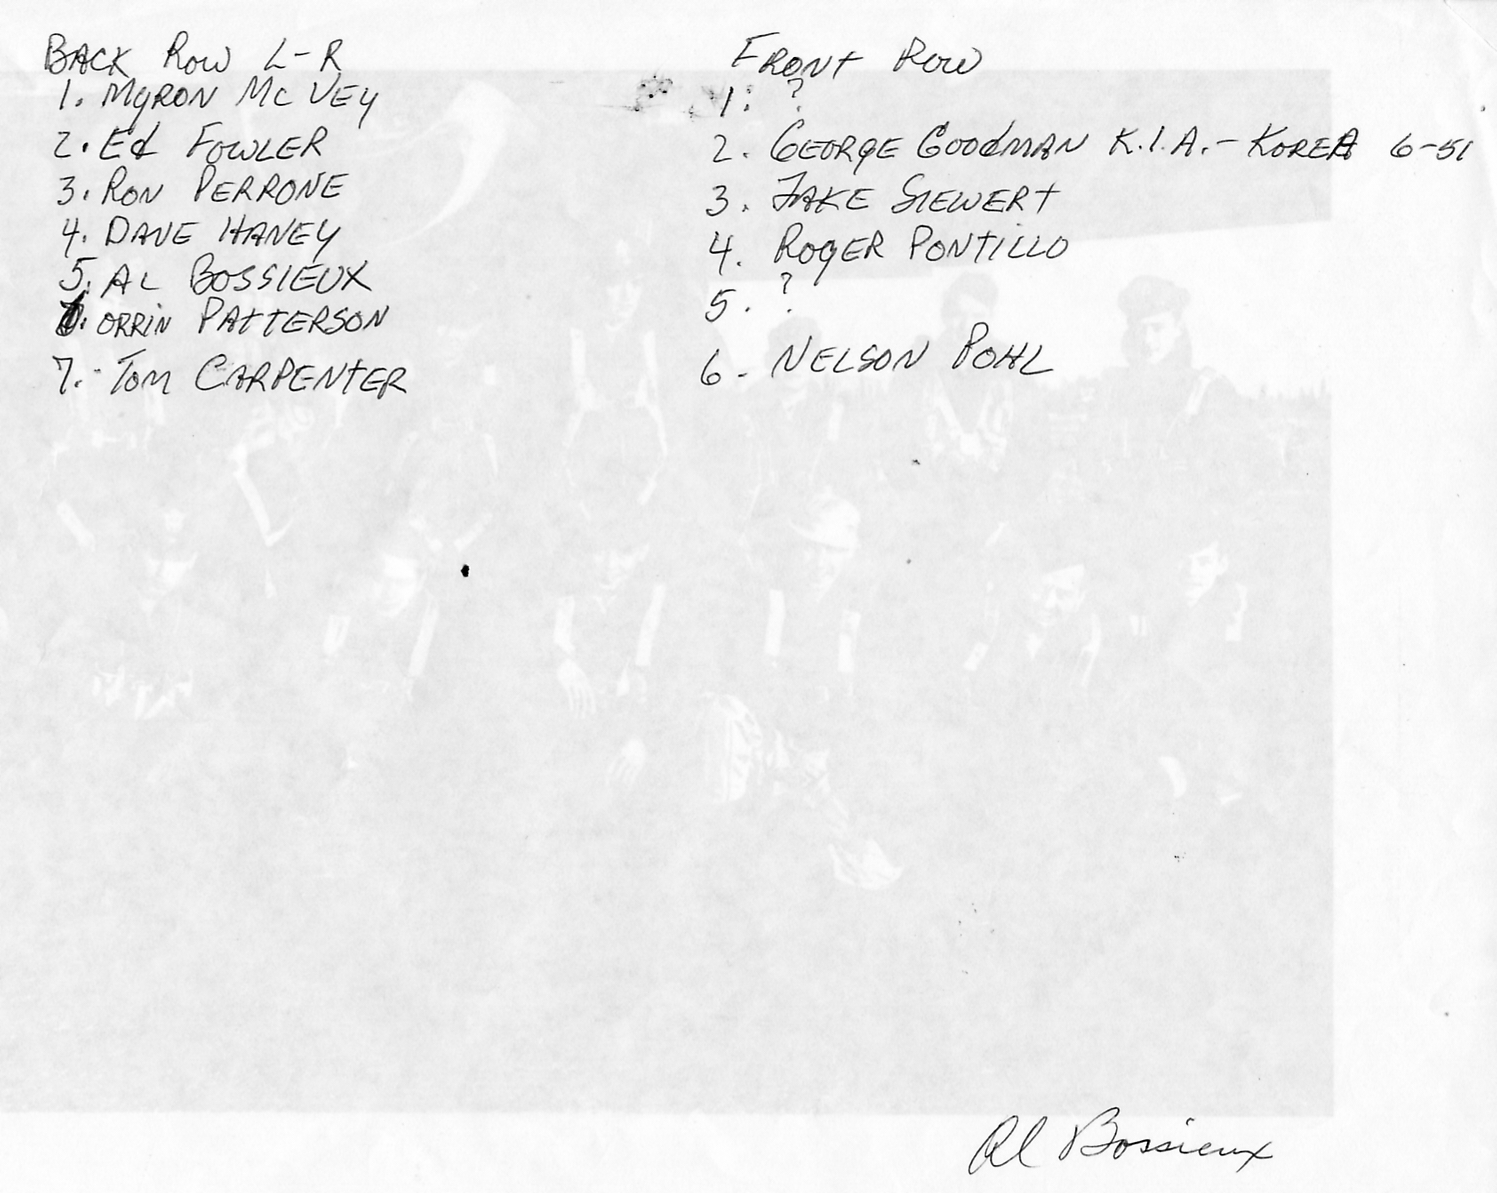 BACK ROW L-R
1. MYRON MCVEY
2. Ed FOWLER
3. RON PERRONE
4. DAVE HANEY
5. AL BOSSIEUX
6. ORRIN PATTERSON
7. TOM CARPENTER
FRONT ROW
1. ?
2. GEORGE GOODMAN K.I.A. - KOREA 6-51
3. JAKE SIEWERT
4. ROGER PONTILLO
5. ?
6. NELSON POHL
Al Bossieux